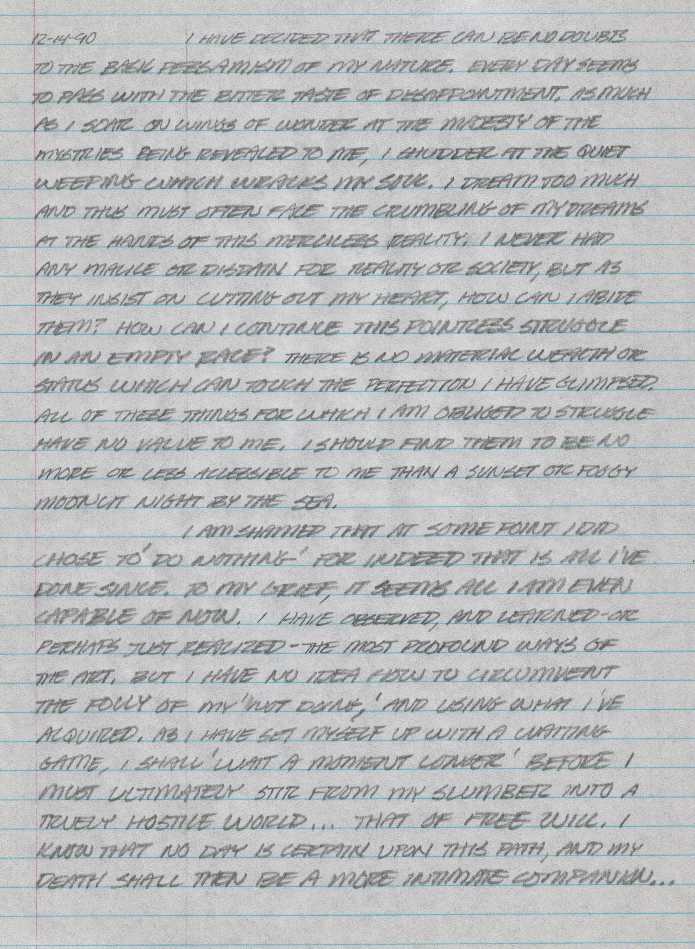 12-14-90 I HAVE DECIDED THAT THERE CAN BE NO DOUBTS
TO THE BASIC PESSAMISM OF MY NATURE. EVERY DAY SEEMS
TO PASS WITH THE BITTER TASTE OF DISAPPOINTMENT. AS MUCH
AS I SOAR ON WINGS OF WONDER AT THE MAJESTY OF THE
MYSTRIES BEING REVEALED TO ME, I SHUDDER AT THE QUIET
WEEPING WHICH WRACKS MY SOUL. I DREAM TOO MUCH
AND THUS MUST OFTEN FACE THE CRUMBLING OF MY DREAMS
AT THE HANDS OF THIS MERCILESS REALITY. I NEVER HAD
ANY MALICE OR DISDAIN FOR REALITY OR SOCIETY, BUT AS
THEY INSIST ON CUTTING OUT MY HEART, HOW CAN I ABIDE
THEM? HOW CAN I CONTINUE THIS POINTLESS STRUGGLE
IN AN EMPTY RACE? THERE IS NO MATERIAL WEALTH OR
STATUS WHICH CAN TOUCH THE PERFECTION I HAVE GLIMPSED.
ALL OF THESE THINGS FOR WHICH I AM OBLIGED TO STRUGGLE
HAVE NO VALUE TO ME. I SHOULD FIND THEM TO BE NO
MORE OR LESS ACCESSIBLE TO ME THAN A SUNSET OR FOGGY
MOONLIT NIGHT BY THE SEA.
I AM SHAMED THAT AT SOME POINT I DID
CHOSE TO 'DO NOTHING' FOR INDEED THAT IS ALL I'VE
DONE SINCE. TO MY GRIEF, IT SEEMS ALL I AM EVEN
CAPABLE OF NOW. I HAVE OBSERVED, AND LEARNED - OR
PERHAPS JUST REALIZED - THE MOST PROFOUND WAYS OF
THE ART. BUT I HAVE NO IDEA HOW TO CIRCUMVENT
THE FOLLY OF MY 'NOT DOING,' AND USING WHAT I'VE
ACQUIRED. AS I HAVE SET MYSELF UP WITH A WAITING
GAME, I SHALL 'WAIT A MOMENT LONGER' BEFORE I
MUST ULTIMATELY STIR FROM MY SLUMBER INTO A
TRUELY HOSTILE WORLD... THAT OF FREE WILL. I
KNOW THAT NO DAY IS CERTAIN UPON THIS PATH, AND MY
DEATH SHALL THEN BE A MORE INTIMATE COMPANION...